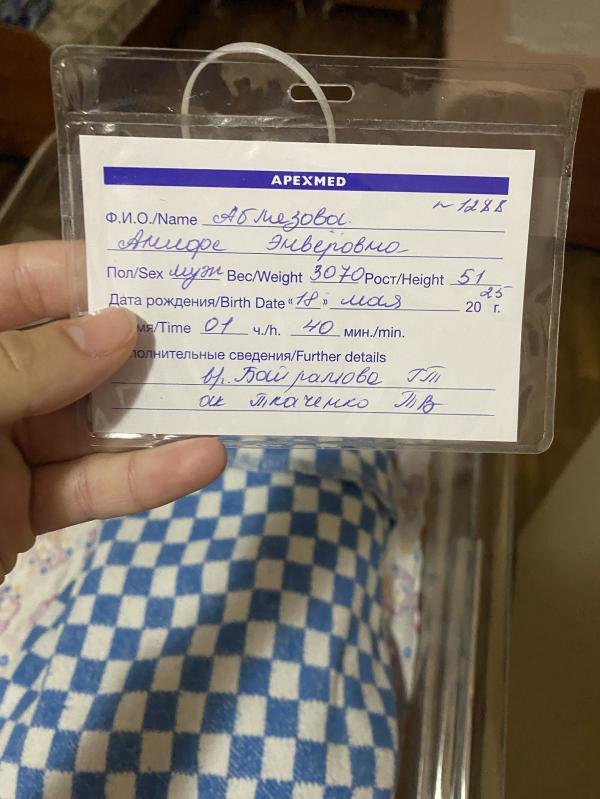 APEXMED
№ 1288
Ф.И.О./Name Аблязова
Анифе Энверовна
Пол/Sex муж Вес/Weight 3070 Рост/Height 51
Дата рождения/Birth Date «18» мая 2025 г.
мя/Time 01 ч./h. 40 мин./min.
полнительные сведения/Further details
вр. Байрамова ГТ
ак Ткаченко ТВ